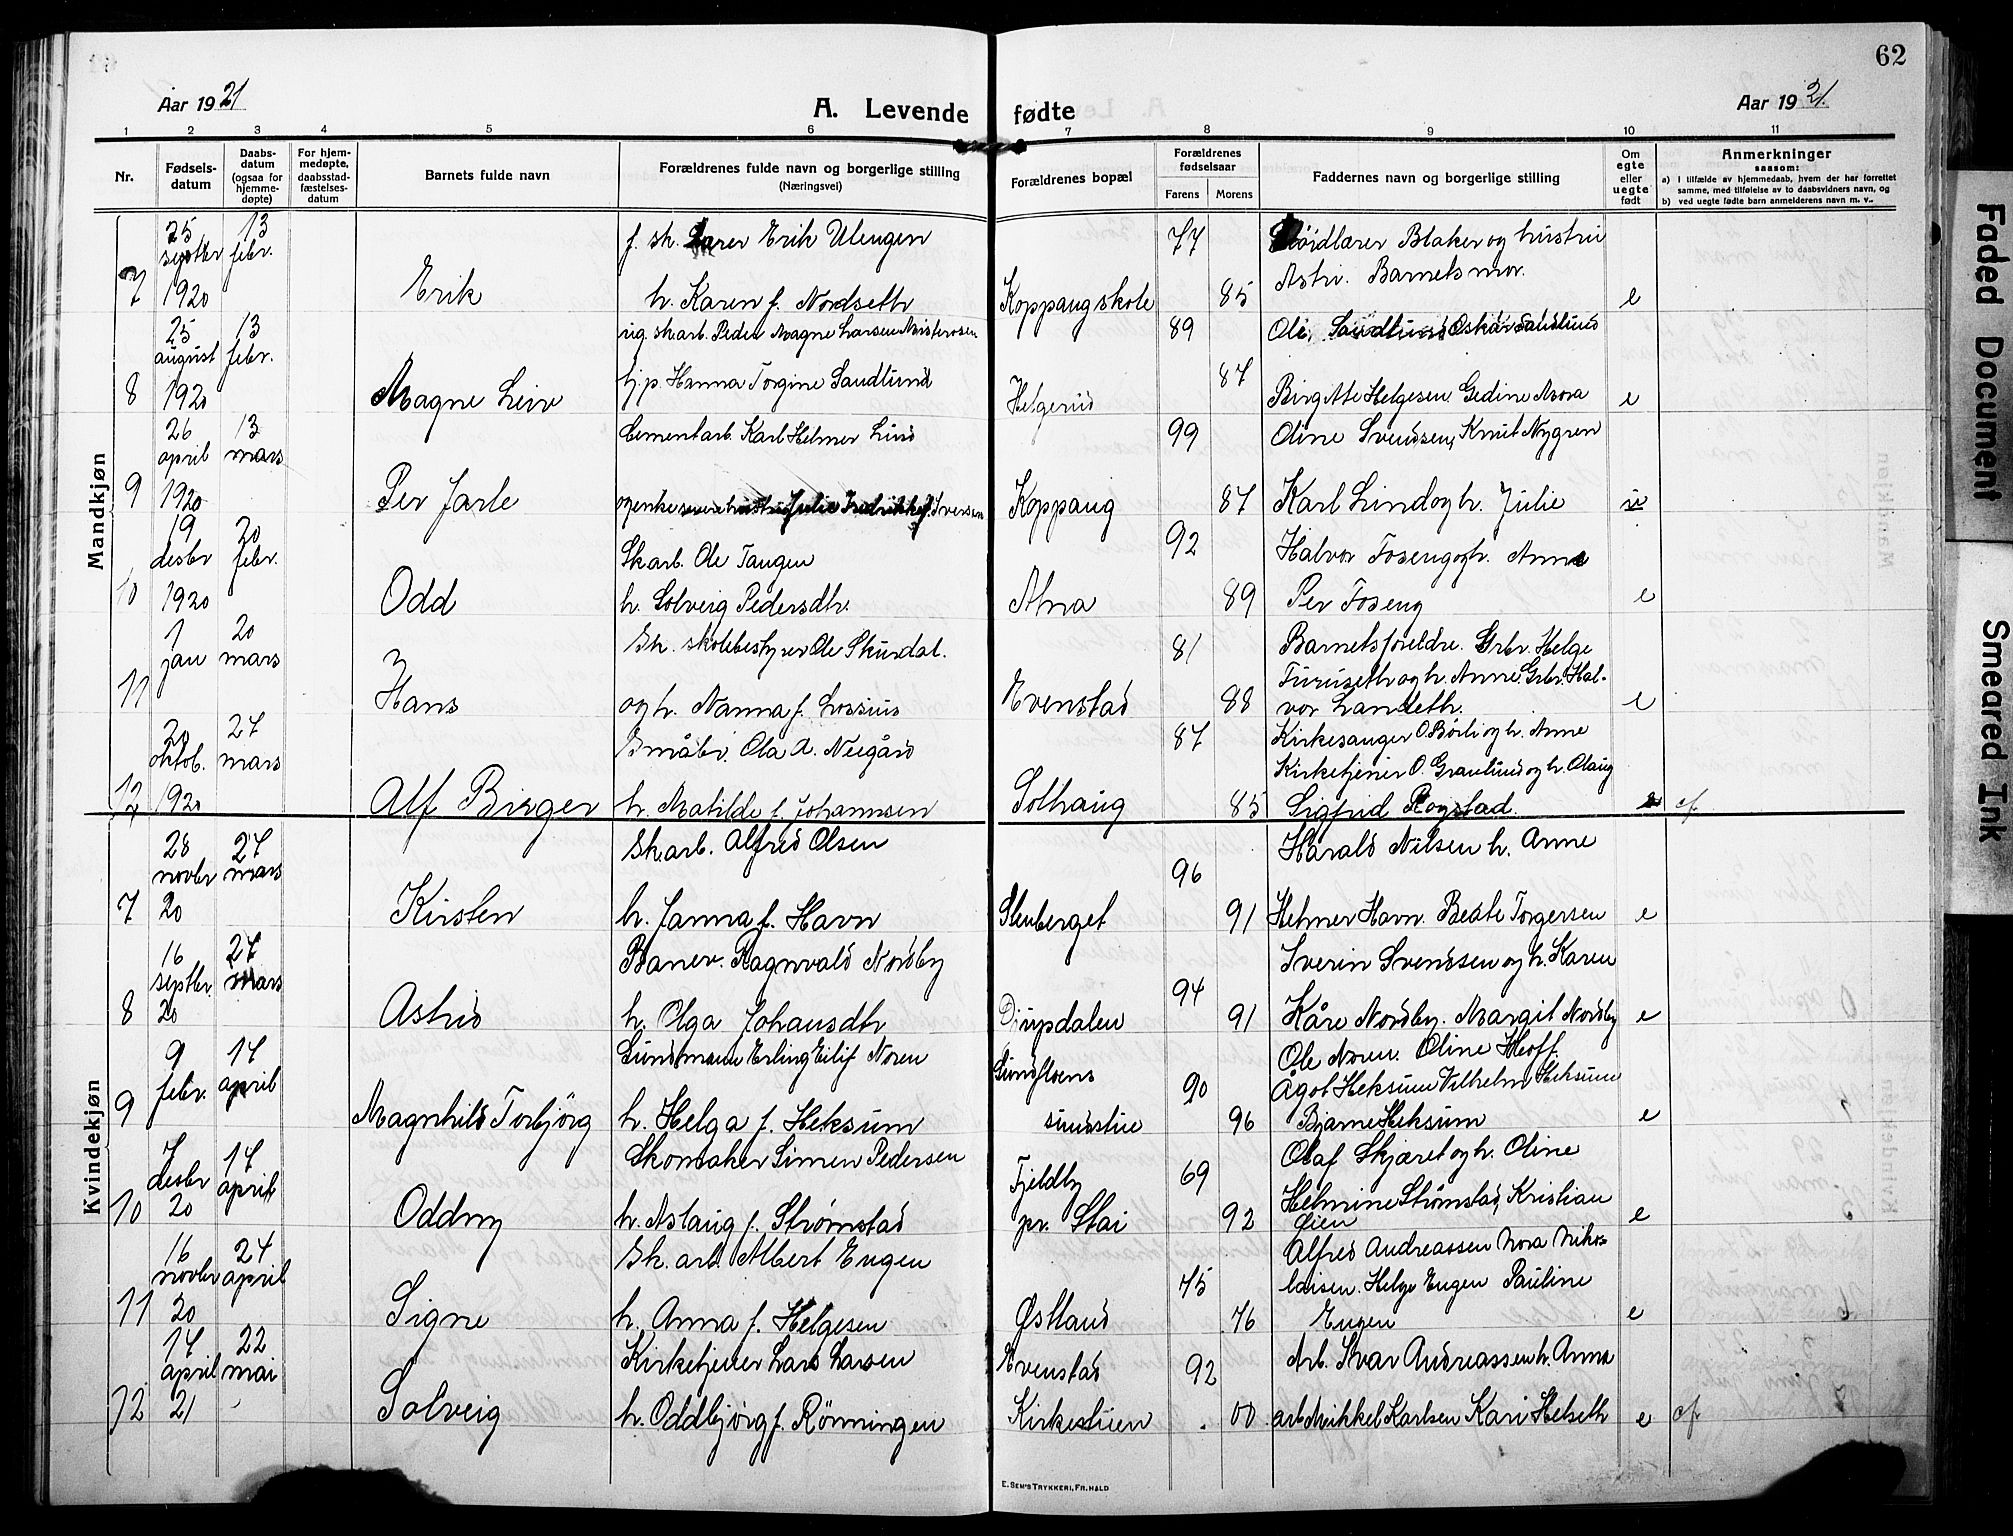 62
Aar 1921
A. Levende fødte
Aar 1921.
1 2 3 4 5 6 7 8 9 10 11
Nr.
Fødsels-
datum
Daabs-
datum
(ogsaa for
hjemme-
døpte)
For hjem-
medøpte,
daabsstad-
fæstelses-
datum
Barnets fulde navn
Forældrenes fulde navn og borgerlige stilling
(Næringsvei)
Forældrenes bopæl
Forældrenes
fødselsaar
Farens
Morens
Faddernes navn og borgerlige stilling
Om
egte
eller
uegte
født
Anmerkninger
saasom:
a) I tilfælde av hjemmedaab, hvem der har forrettet
samme, med tilføielse av to daabsvidners navn, og
b) ved uegte fødte barn anmelderens navn m. v..
Mandkjøn
7 25 septbr 1920 13 febr. Erik
f. sk. lærer Erik Ulengen
h. Karen f. Nordseth
Koppang skole 77 85
Sløidlærer Blaker og hustru
Astri. Barnets mor. e
8 25 august 1920 13 febr. Magne Leiv
sk.arb. Peder Magne Larsen
Hj.p. Hanna Torgine Sandlund
Helgerud 89 87
Ole, Sandlund Oskar Sandlund
Birgitte Helgesen Gedine Mora e
9 26 april 1920 13 mars Per Jarle
Cementarb. Karl Helmer Lind
og hustru Julie Fredrikke f. Iversen
Koppang 99 87
Oline Svendsen, Knut Nygren
Karl Lind og h. Julie
10 19 desbr 1920 20 febr. Odd
Skarb. Ole Tangen
h. Solveig Pedersdtr.
Atna 92 89
Halvor Foseng og h. Anna
Per Foseng e
11 1 jan 20 mars Hans
Sk. skolebestyrer Ole Skurdal.
og h. Nanna f. Lossius
Evenstad 81 88
Barnets foreldre. Grbr. Helge
Furuseth og h. Anne. Grbr. Hal-
vor Landeth. e
12 20 oktob. 1920 27 mars Alf Birger
Småbr. Ola A. Neegård
h. Matilde f. Johannsen
Solhaug 87 85
Kirkesanger O. Børli og h. Anne
Kirketjener O. Granlund og h. Olaug
Sigfrid Rogstad. cf.
Kvindekjøn
7 28 novbr 20 27 mars Kirsten
Skarb. Alfred Olsen
h. Janna f. Havn
Stenberget 96 91
Harald Nilsen h. Anne
Helmer Havn. Beate Torgersen e
8 16 septbr. 20 27 mars Astrid
Banev. Ragnvald Nordby
h. Olga Johansdtr
Djupdalen 94 91
Sverin Svendsen og h. Karen
Kåre Nordby. Margit Nordby e
9 9 febr. 17 april Magnhild Torbjörg
Sundmann Erling Eilif Noren
h. Helga f. Heksum
Sundfloens
sundstue 90 96
Ole Noren. Oline Hoff.
Ågot Heksum Vilhelm Heksum
Bjarne Heksum e
10 7 desbr 20 17 april Oddny
Skomaker Simen Pedersen
h. Aslaug f. Strømstad
Fjeldby
pr. Stai 69 92
Olaf Skjæret og h. Oline
Helmine Strømstad, Kristian
Lien e
11 16 novbr 20 24 april Signe
Sk. arb. Albert Engen
h. Anna f. Helgesen
Østland 75 76
Alfred Andreassen Nora Niko-
laisen. Helge Engen Pauline
Engen e
12 14 april 21 22 mai Solveig
Kirketjener Lars Larsen
h. Oddbjörg f. Rönningen
Evenstad
Kirkestuen 92 00
Arb. Ivar Andreassen h. Anna
arb Mikkel Karlsen Kari Helseth e cf.
E. SEM'S TRYKKERI, FR.HALD
Faded Document
Smeared Ink